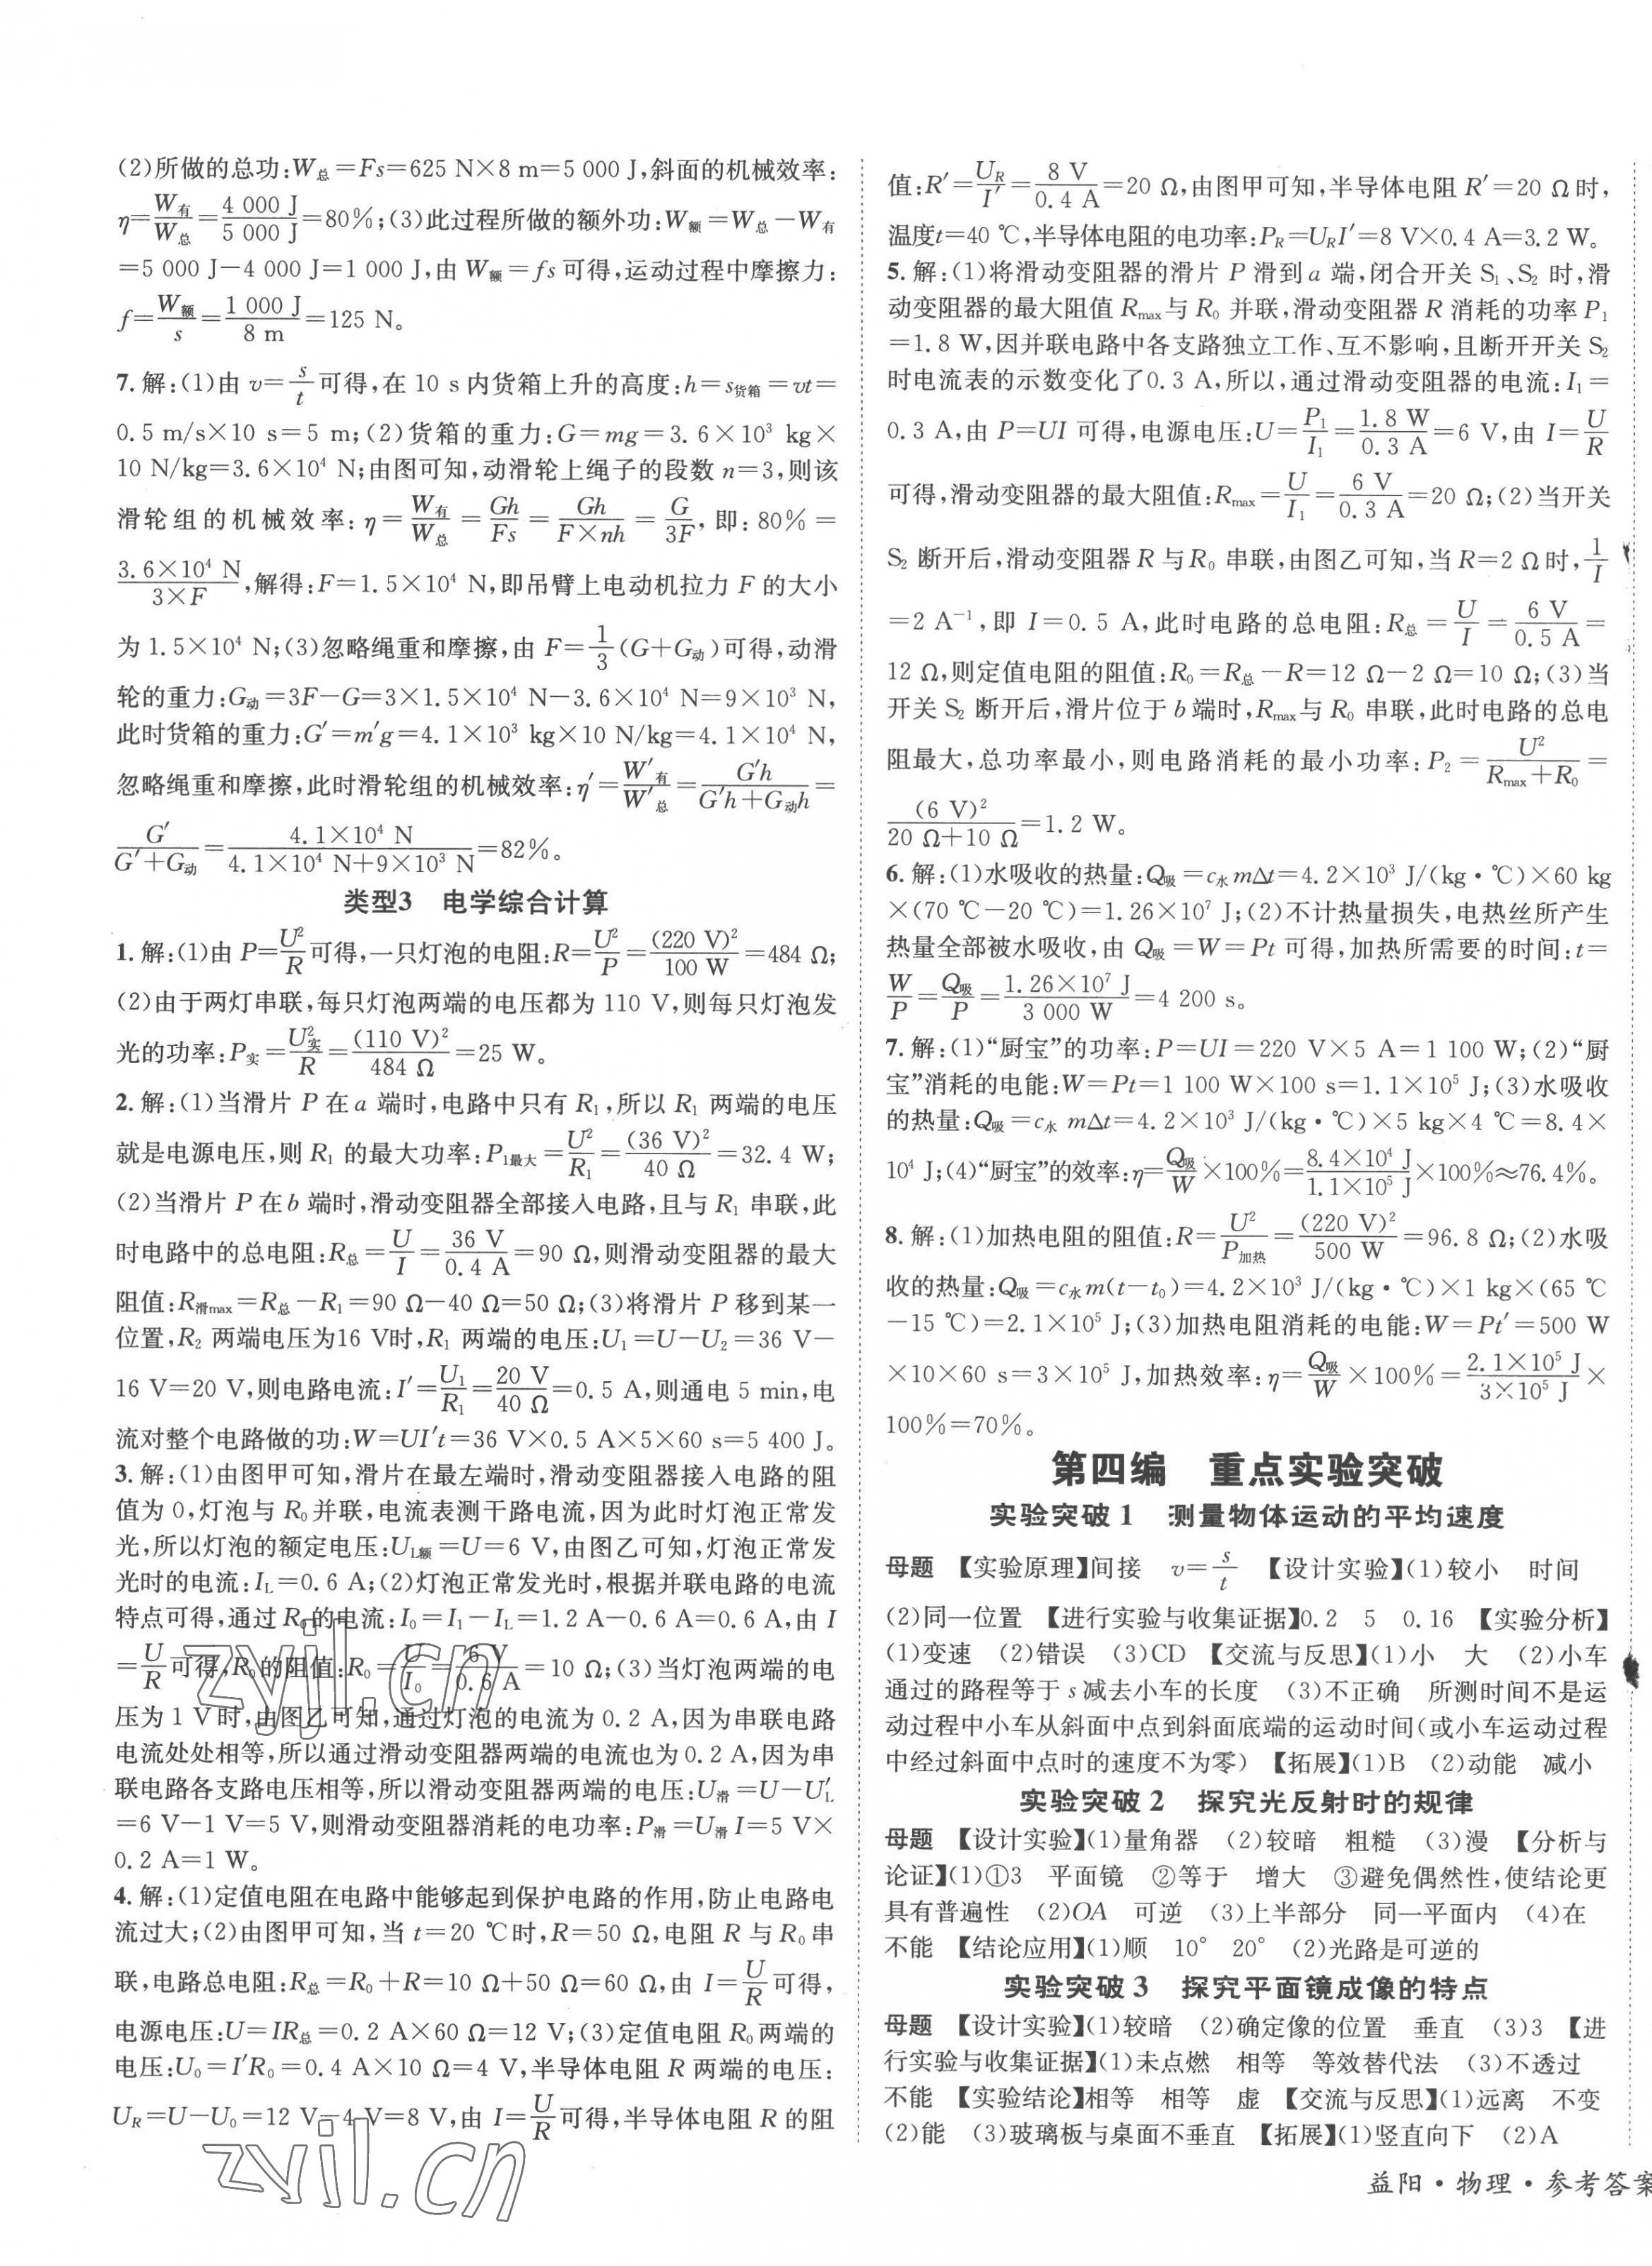 (2)所做的总功:W总=Fs=625 N×8 m=5 000 J,斜面的机械效率:
η=W有/W总=4 000 J/5 000 J=80%;(3)此过程所做的额外功:W额=W总-W有
=5 000 J-4 000 J=1 000 J,由 W额=fs可得,运动过程中摩擦力:
f=W额/s=1 000 J/8 m=125 N。
7.解:(1)由 v=s/t可得,在 10 s内货箱上升的高度:h=s货箱=vt=
0.5 m/s×10 s=5 m;(2)货箱的重力:G=mg=3.6×10³ kg×
10 N/kg=3.6×10⁴ N;由图可知,动滑轮上绳子的段数 n=3,则该
滑轮组的机械效率:η=W有/W总=Gh/Fs=Gh/(F×nh)=G/3F,即:80%=
3.6×10⁴ N/(3×F),解得:F=1.5×10⁴ N,即吊臂上电动机拉力 F 的大小
为 1.5×10⁴ N;(3)忽略绳重和摩擦,由 F=1/3(G+G动)可得,动滑
轮的重力:G动=3F-G=3×1.5×10⁴ N-3.6×10⁴ N=9×10³ N,
此时货箱的重力:G′=m′g=4.1×10³ kg×10 N/kg=4.1×10⁴ N,
忽略绳重和摩擦,此时滑轮组的机械效率:η′=W′有/W′总=G′h/(G′h+G动h)=
G′/(G′+G动)=4.1×10⁴ N/(4.1×10⁴ N+9×10³ N)=82%。
类型3 电学综合计算
1.解:(1)由 P=U²/R可得,一只灯泡的电阻:R=U²/P=(220 V)²/100 W=484 Ω;
(2)由于两灯串联,每只灯泡两端的电压都为 110 V,则每只灯泡发
光的功率:P实=U实²/R=(110 V)²/484 Ω=25 W。
2.解:(1)当滑片 P 在a 端时,电路中只有 R₁,所以 R₁ 两端的电压
就是电源电压,则 R₁ 的最大功率:P₁最大=U²/R₁=(36 V)²/40 Ω=32.4 W;
(2)当滑片 P 在b 端时,滑动变阻器全部接入电路,且与 R₁ 串联,此
时电路中的总电阻:R总=U/I=36 V/0.4 A=90 Ω,则滑动变阻器的最大
阻值:R滑max=R总-R₁=90 Ω-40 Ω=50 Ω;(3)将滑片 P 移到某一
位置,R₂ 两端电压为16 V时,R₁ 两端的电压:U₁=U-U₂=36 V-
16 V=20 V,则电路电流:I′=U₁/R₁=20 V/40 Ω=0.5 A,则通电 5 min,电
流对整个电路做的功:W=UI′t=36 V×0.5 A×5×60 s=5 400 J。
3.解:(1)由图甲可知,滑片在最左端时,滑动变阻器接入电路的阻
值为 0,灯泡与 R₀并联,电流表测干路电流,因为此时灯泡正常发
光,所以灯泡的额定电压:UL额=U=6 V,由图乙可知,灯泡正常发
光时的电流:IL=0.6 A;(2)灯泡正常发光时,根据并联电路的电流
特点可得,通过 R₀的电流:I₀=I₁-IL=1.2 A-0.6 A=0.6 A,由 I
=U/R可得,R₀的阻值:R₀=U/I₀=6 V/0.6 A=10 Ω;(3)当灯泡两端的电
压为 1 V时,由图乙可知,通过灯泡的电流为 0.2 A,因为串联电路
电流处处相等,所以通过滑动变阻器两端的电流也为 0.2 A,因为串
联电路各支路电压相等,所以滑动变阻器两端的电压:U滑=U-U′L
=6 V-1 V=5 V,则滑动变阻器消耗的电功率:P滑=U滑I=5 V×
0.2 A=1 W。
4.解:(1)定值电阻在电路中能够起到保护电路的作用,防止电路电
流过大;(2)由图甲可知,当 t=20 ℃时,R=50 Ω,电阻 R 与 R₀串
联,电路总电阻:R总=R₀+R=10 Ω+50 Ω=60 Ω,由 I=U/R可得,
电源电压:U=IR总=0.2 A×60 Ω=12 V;(3)定值电阻 R₀两端的
电压:U₀=I′R₀=0.4 A×10 Ω=4 V,半导体电阻 R 两端的电压:
UR=U-U₀=12 V-4 V=8 V,由 I=U/R可得,半导体电阻 R 的阻
值:R′=UR/I′=8 V/0.4 A=20 Ω,由图甲可知,半导体电阻 R′=20 Ω时,
温度t=40 ℃,半导体电阻的电功率:PR=URI′=8 V×0.4 A=3.2 W。
5.解:(1)将滑动变阻器的滑片 P 滑到 a 端,闭合开关 S₁、S₂ 时,滑
动变阻器的最大阻值 Rmax与 R₀ 并联,滑动变阻器 R 消耗的功率 P₁
=1.8 W,因并联电路中各支路独立工作、互不影响,且断开开关 S₂
时电流表的示数变化了0.3 A,所以,通过滑动变阻器的电流:I₁=
0.3 A,由 P=UI 可得,电源电压:U=P₁/I₁=1.8 W/0.3 A=6 V,由 I=U/R
可得,滑动变阻器的最大阻值:Rmax=U/I₁=6 V/0.3 A=20 Ω;(2)当开关
S₂ 断开后,滑动变阻器 R 与R₀ 串联,由图乙可知,当 R=2 Ω时,1/I
=2 A⁻¹,即 I=0.5 A,此时电路的总电阻:R总=U/I=6 V/0.5 A=
12 Ω,则定值电阻的阻值:R₀=R总-R=12 Ω-2 Ω=10 Ω;(3)当
开关 S₂ 断开后,滑片位于 b 端时,Rmax与 R₀ 串联,此时电路的总电
阻最大,总功率最小,则电路消耗的最小功率:P₂=U²/(Rmax+R₀)=
(6 V)²/(20 Ω+10 Ω)=1.2 W。
6.解:(1)水吸收的热量:Q吸=c水mΔt=4.2×10³ J/(kg·℃)×60 kg
×(70 ℃-20 ℃)=1.26×10⁷ J;(2)不计热量损失,电热丝所产生
热量全部被水吸收,由 Q吸=W=Pt 可得,加热所需要的时间:t=
W/P=Q吸/P=1.26×10⁷ J/3 000 W=4 200 s。
7.解:(1)“厨宝”的功率:P=UI=220 V×5 A=1 100 W;(2)“厨
宝”消耗的电能:W=Pt=1 100 W×100 s=1.1×10⁵ J;(3)水吸收
的热量:Q吸=c水mΔt=4.2×10³ J/(kg·℃)×5 kg×4 ℃=8.4×
10⁴ J;(4)“厨宝”的效率:η=Q吸/W×100%=8.4×10⁴ J/1.1×10⁵ J×100%≈76.4%。
8.解:(1)加热电阻的阻值:R=U²/P加热=(220 V)²/500 W=96.8 Ω;(2)水吸
收的热量:Q吸=c水m(t-t₀)=4.2×10³ J/(kg·℃)×1 kg×(65 ℃
-15 ℃)=2.1×10⁵ J;(3)加热电阻消耗的电能:W=Pt′=500 W
×10×60 s=3×10⁵ J,加热效率:η=Q吸/W×100%=2.1×10⁵ J/3×10⁵ J×
100%=70%。
第四编 重点实验突破
实验突破1 测量物体运动的平均速度
母题 【实验原理】间接 v=s/t 【设计实验】(1)较小 时间
(2)同一位置 【进行实验与收集证据】0.2 5 0.16 【实验分析】
(1)变速 (2)错误 (3)CD 【交流与反思】(1)小 大 (2)小车
通过的路程等于 s减去小车的长度 (3)不正确 所测时间不是运
动过程中小车从斜面中点到斜面底端的运动时间(或小车运动过程
中经过斜面中点时的速度不为零) 【拓展】(1)B (2)动能 减小
实验突破2 探究光反射时的规律
母题 【设计实验】(1)量角器 (2)较暗 粗糙 (3)漫 【分析与
论证】(1)①3 平面镜 ②等于 增大 ③避免偶然性,使结论更
具有普遍性 (2)OA 可逆 (3)上半部分 同一平面内 (4)在
不能 【结论应用】(1)顺 10° 20° (2)光路是可逆的
实验突破3 探究平面镜成像的特点
母题 【设计实验】(1)较暗 (2)确定像的位置 垂直 (3)3 【进
行实验与收集证据】(1)未点燃 相等 等效替代法 (3)不透过
不能 【实验结论】相等 相等 虚 【交流与反思】(1)远离 不变
(2)能 (3)玻璃板与桌面不垂直 【拓展】(1)竖直向下 (2)A
益阳·物理·参考答案
zyjl.cn
zyjl.cn